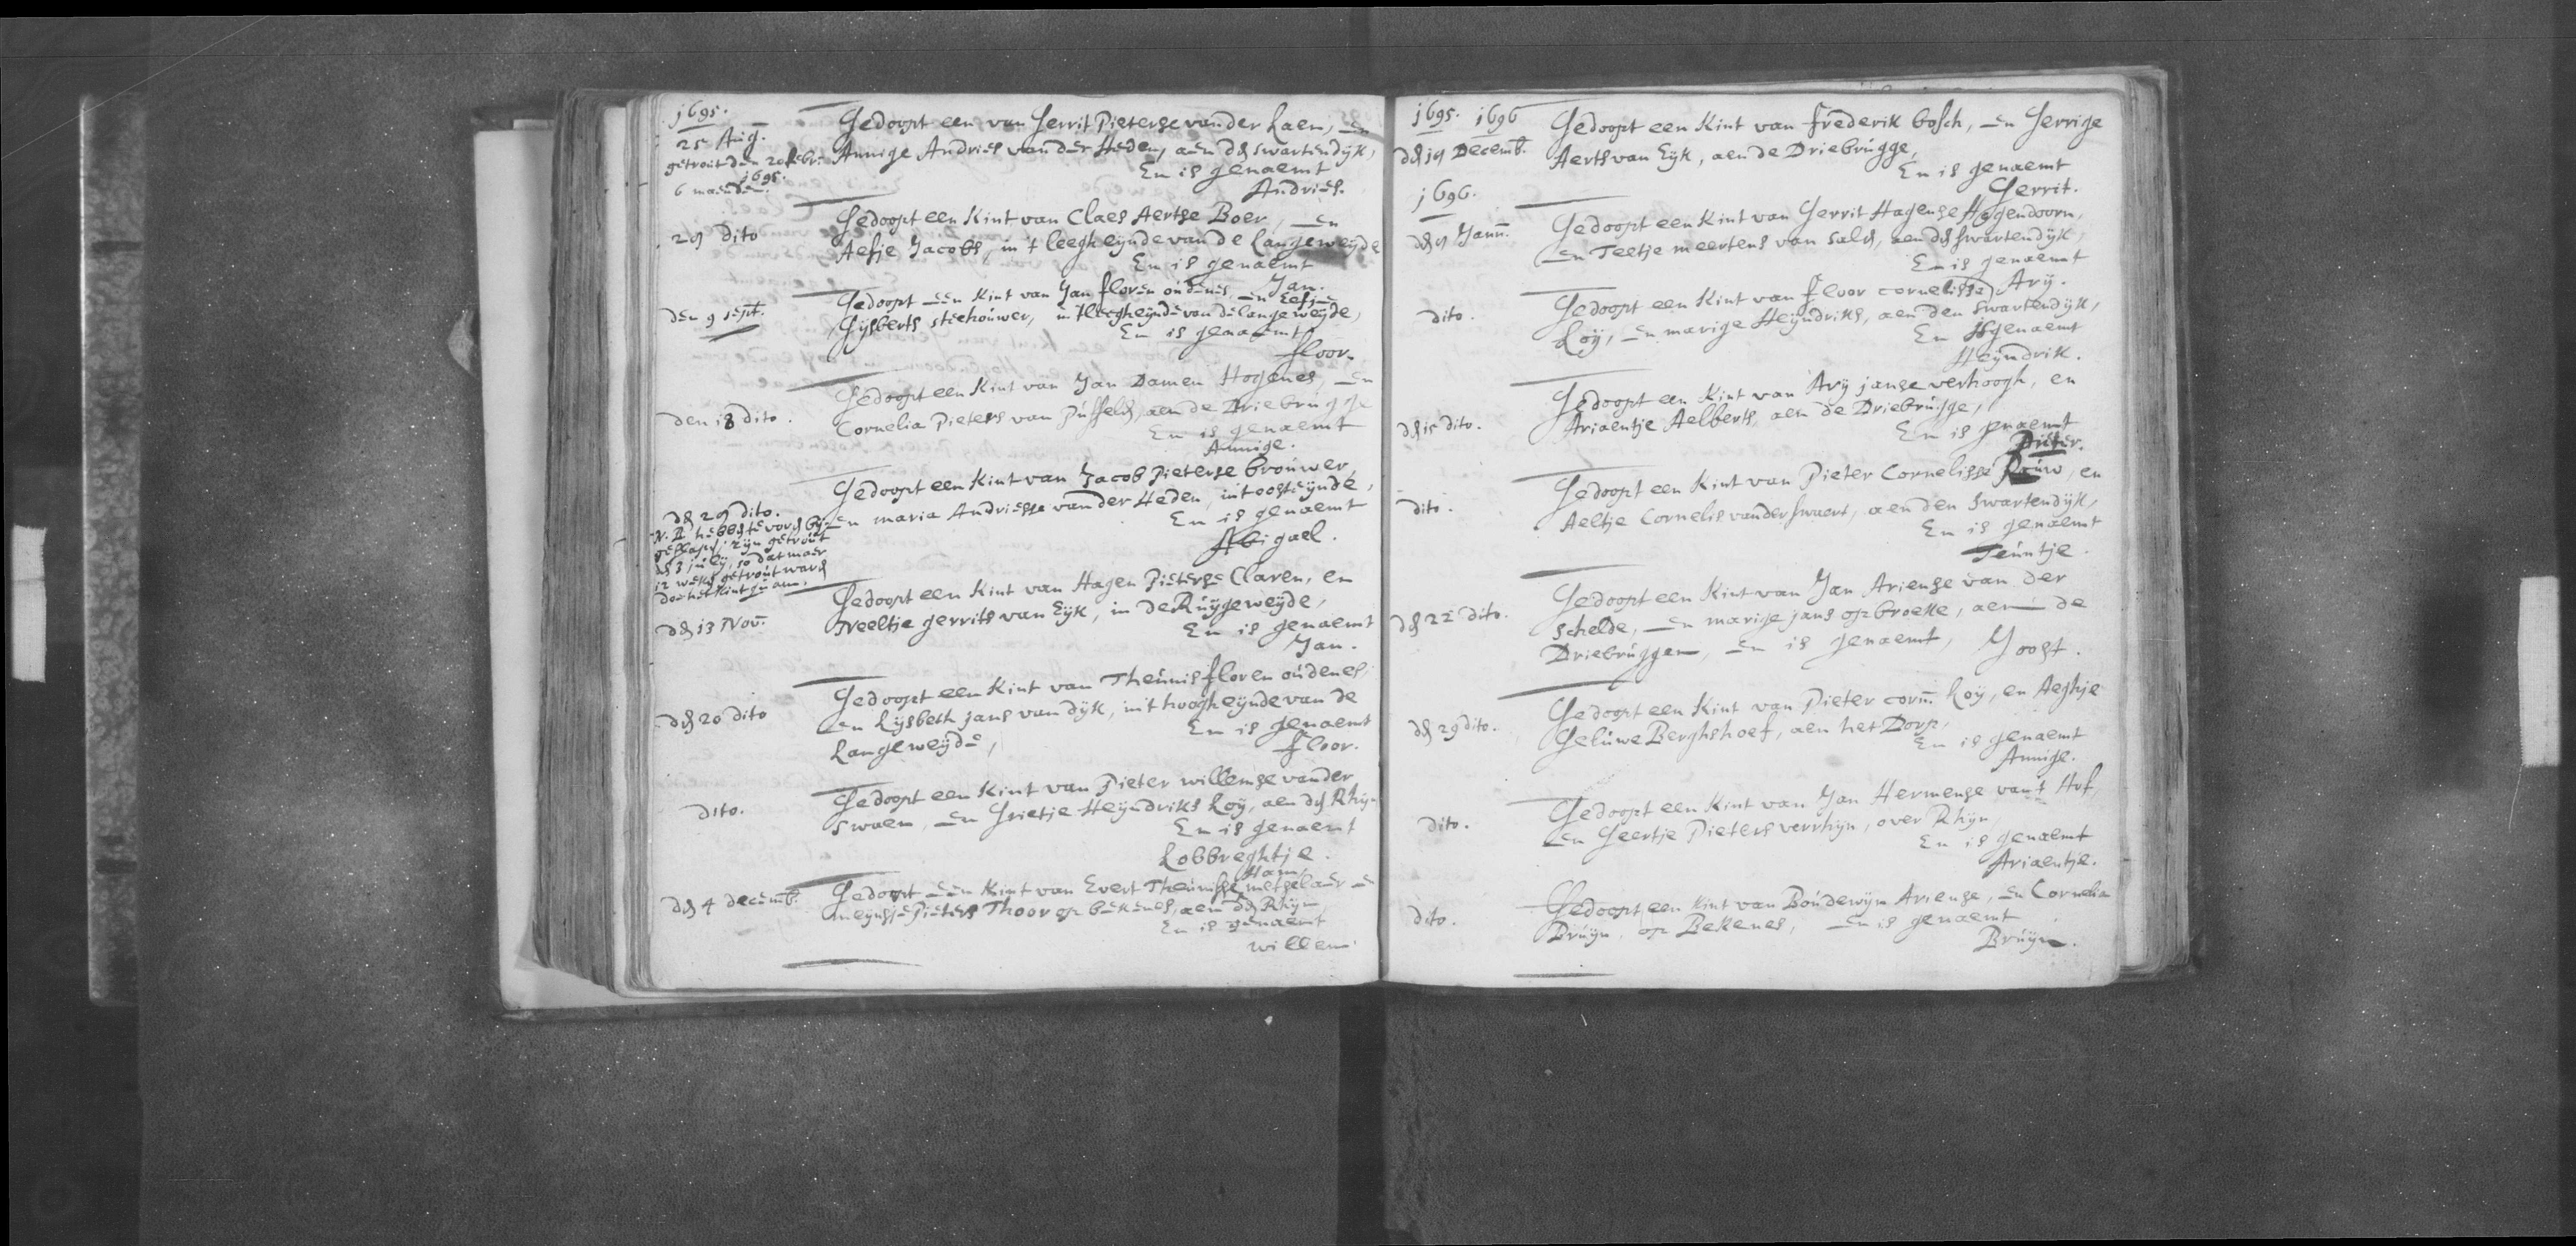 1695.
25 Aug.
getrout den 20 febr.
1695.
6 maenden.
Gedoopt een van Gerrit Pieterse vander Laen, en
Annige Andries vander Heden, aen dn swartendijk,
En is genaemt
Andries.
29 dito
Gedoopt een Kint van Claes Aertse Boer, en
Aefje Jacobs, in 't leegh eynde van de Langeweyde
En is genaemt
Jan.
den 9 sept.
Gedoopt een Kint van Jan floren oudenes, en Eefje
Gijsberts steehouwer, in t leegh eynde van de langeweyde,
En is genaemt
floor.
den 18 dito.
Gedoopt een Kint van Jan Damen Hogenes, en
Cornelia Pieters van Puffelen, aen de Driebrugge
En is genaemt
Annige.
dn 29 dito.
N.B. hebbn te vorn by
geslapn, zijn getrout
dn 3 july, so dat maer
12 weken getrout warn
doe het Kint quam.
Gedoopt een Kint van Jacob Pieterse brouwer,
en maria Andriesse van der Heden, in t oosteynde,
En is genaemt
Abigael.
dn 13 Nov.
Gedoopt een Kint van Hagen Pieterse Claren, en
Neeltje gerrits van Eijk, in de Ruygeweyde,
En is genaemt
Jan.
dn 20 dito
Gedoopt een Kint van Theunis floren oudenes,
en Lijsbeth jans van dijk, in t hoogh eynde van de
Langeweyde,
En is genaemt
floor.
dito.
Gedoopt een Kint van Pieter willemse vander
Swaen, en Grietje Heyndriks Roy, aen dn Rhijn
En is genaemt
Robbreghtje.
dn 4 decemb.
Ham,
Gedoopt een Kint van Evert Theunisse metselaer en
meynsje Pieters Thoor op bekenes, aen dn Rhijn
En is genaemt
willem.
1695. 1696
dn 19 Decemb.
Gedoopt een Kint van frederik bosch, en Gerrige
Aerts van Eijk, aen de Driebrugge,
En is genaemt
Gerrit.
1696.
dn 9 Janu.
Gedoopt een Kint van Gerrit Hagense Hogendoorn,
en Teetje meertens van Saln, aen dn swartendijk,
En is genaemt
Ary.
dito.
Gedoopt een Kint van floor cornelisse
Roy, en marige Heyndriks, aen den Swartendijk,
En is genaemt
Heyndrik.
dn 15 dito.
Gedoopt een Kint van Ary janse verhoogh, en
Ariaentje Aelberts, aen de Driebrugge,
En is genaemt
Pieter.
dito.
Gedoopt een Kint van Pieter Cornelisse Rouw, en
Aeltje Cornelis vander swaert, aen den Swartendijk,
En is genaemt
Teuntje.
dn 22 dito.
Gedoopt een Kint van Jan Ariense van der
Schelde, en marige jans op broeke, aen de
Driebruggen, en is genaemt, Joost.
dn 29 dito.
Gedoopt een Kint van Pieter corn. Roy, en Aeghje
Geluwe Berghshoef, aen het Dorp,
En is genaemt
Annige.
dito.
Gedoopt een Kint van Jan Hermense van t Hof,
en Geertje Pieters verrhijn, over Rhijn,
En is genaemt
Ariaentje.
dito.
Gedoopt een Kint van Boudewijn Ariense, en Cornelia
Bruyn op Bekenes, en is genaemt
Bruyn.